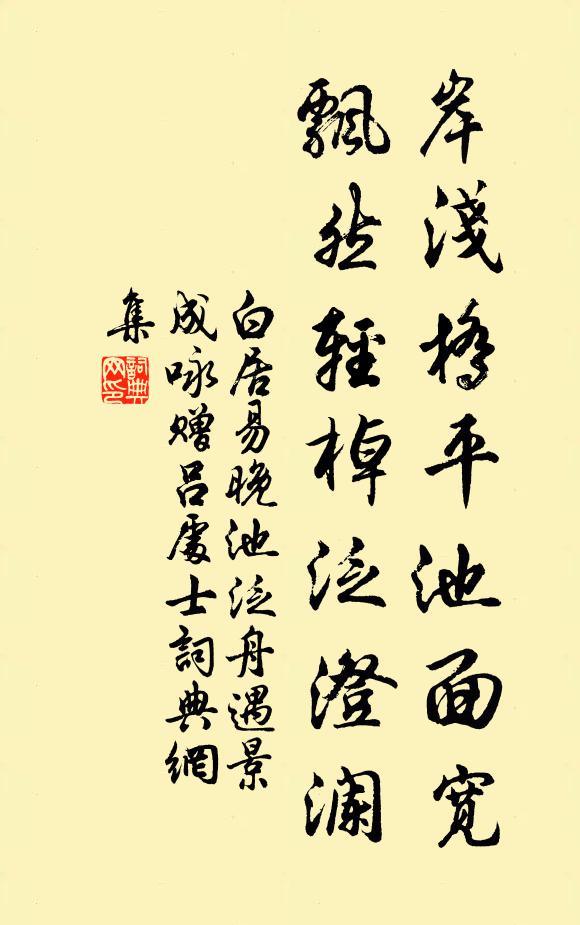 岸淺橋平池面寬
飄然輕棹泛澄澜
白居易晚池泛舟遇景
成咏赠吕處士詞典網
集
詞典
网印